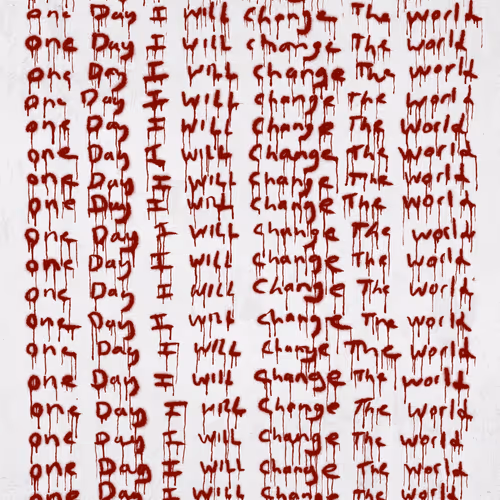 one Day I will Change The world
one Day I will change The world
one Day I will change The world
one Day I will change The world
one Day I will change The world
one Day I will change The world
one Day I will change The world
one Day I will change The world
one Day I will change The world
one Day I will change The world
one Day I will change The world
one Day I will change The world
one Day I will change The world
one Day I will change The world
one Day I will change The world
one Day I will change The world
one Day I will change The world
one Day I will change The world